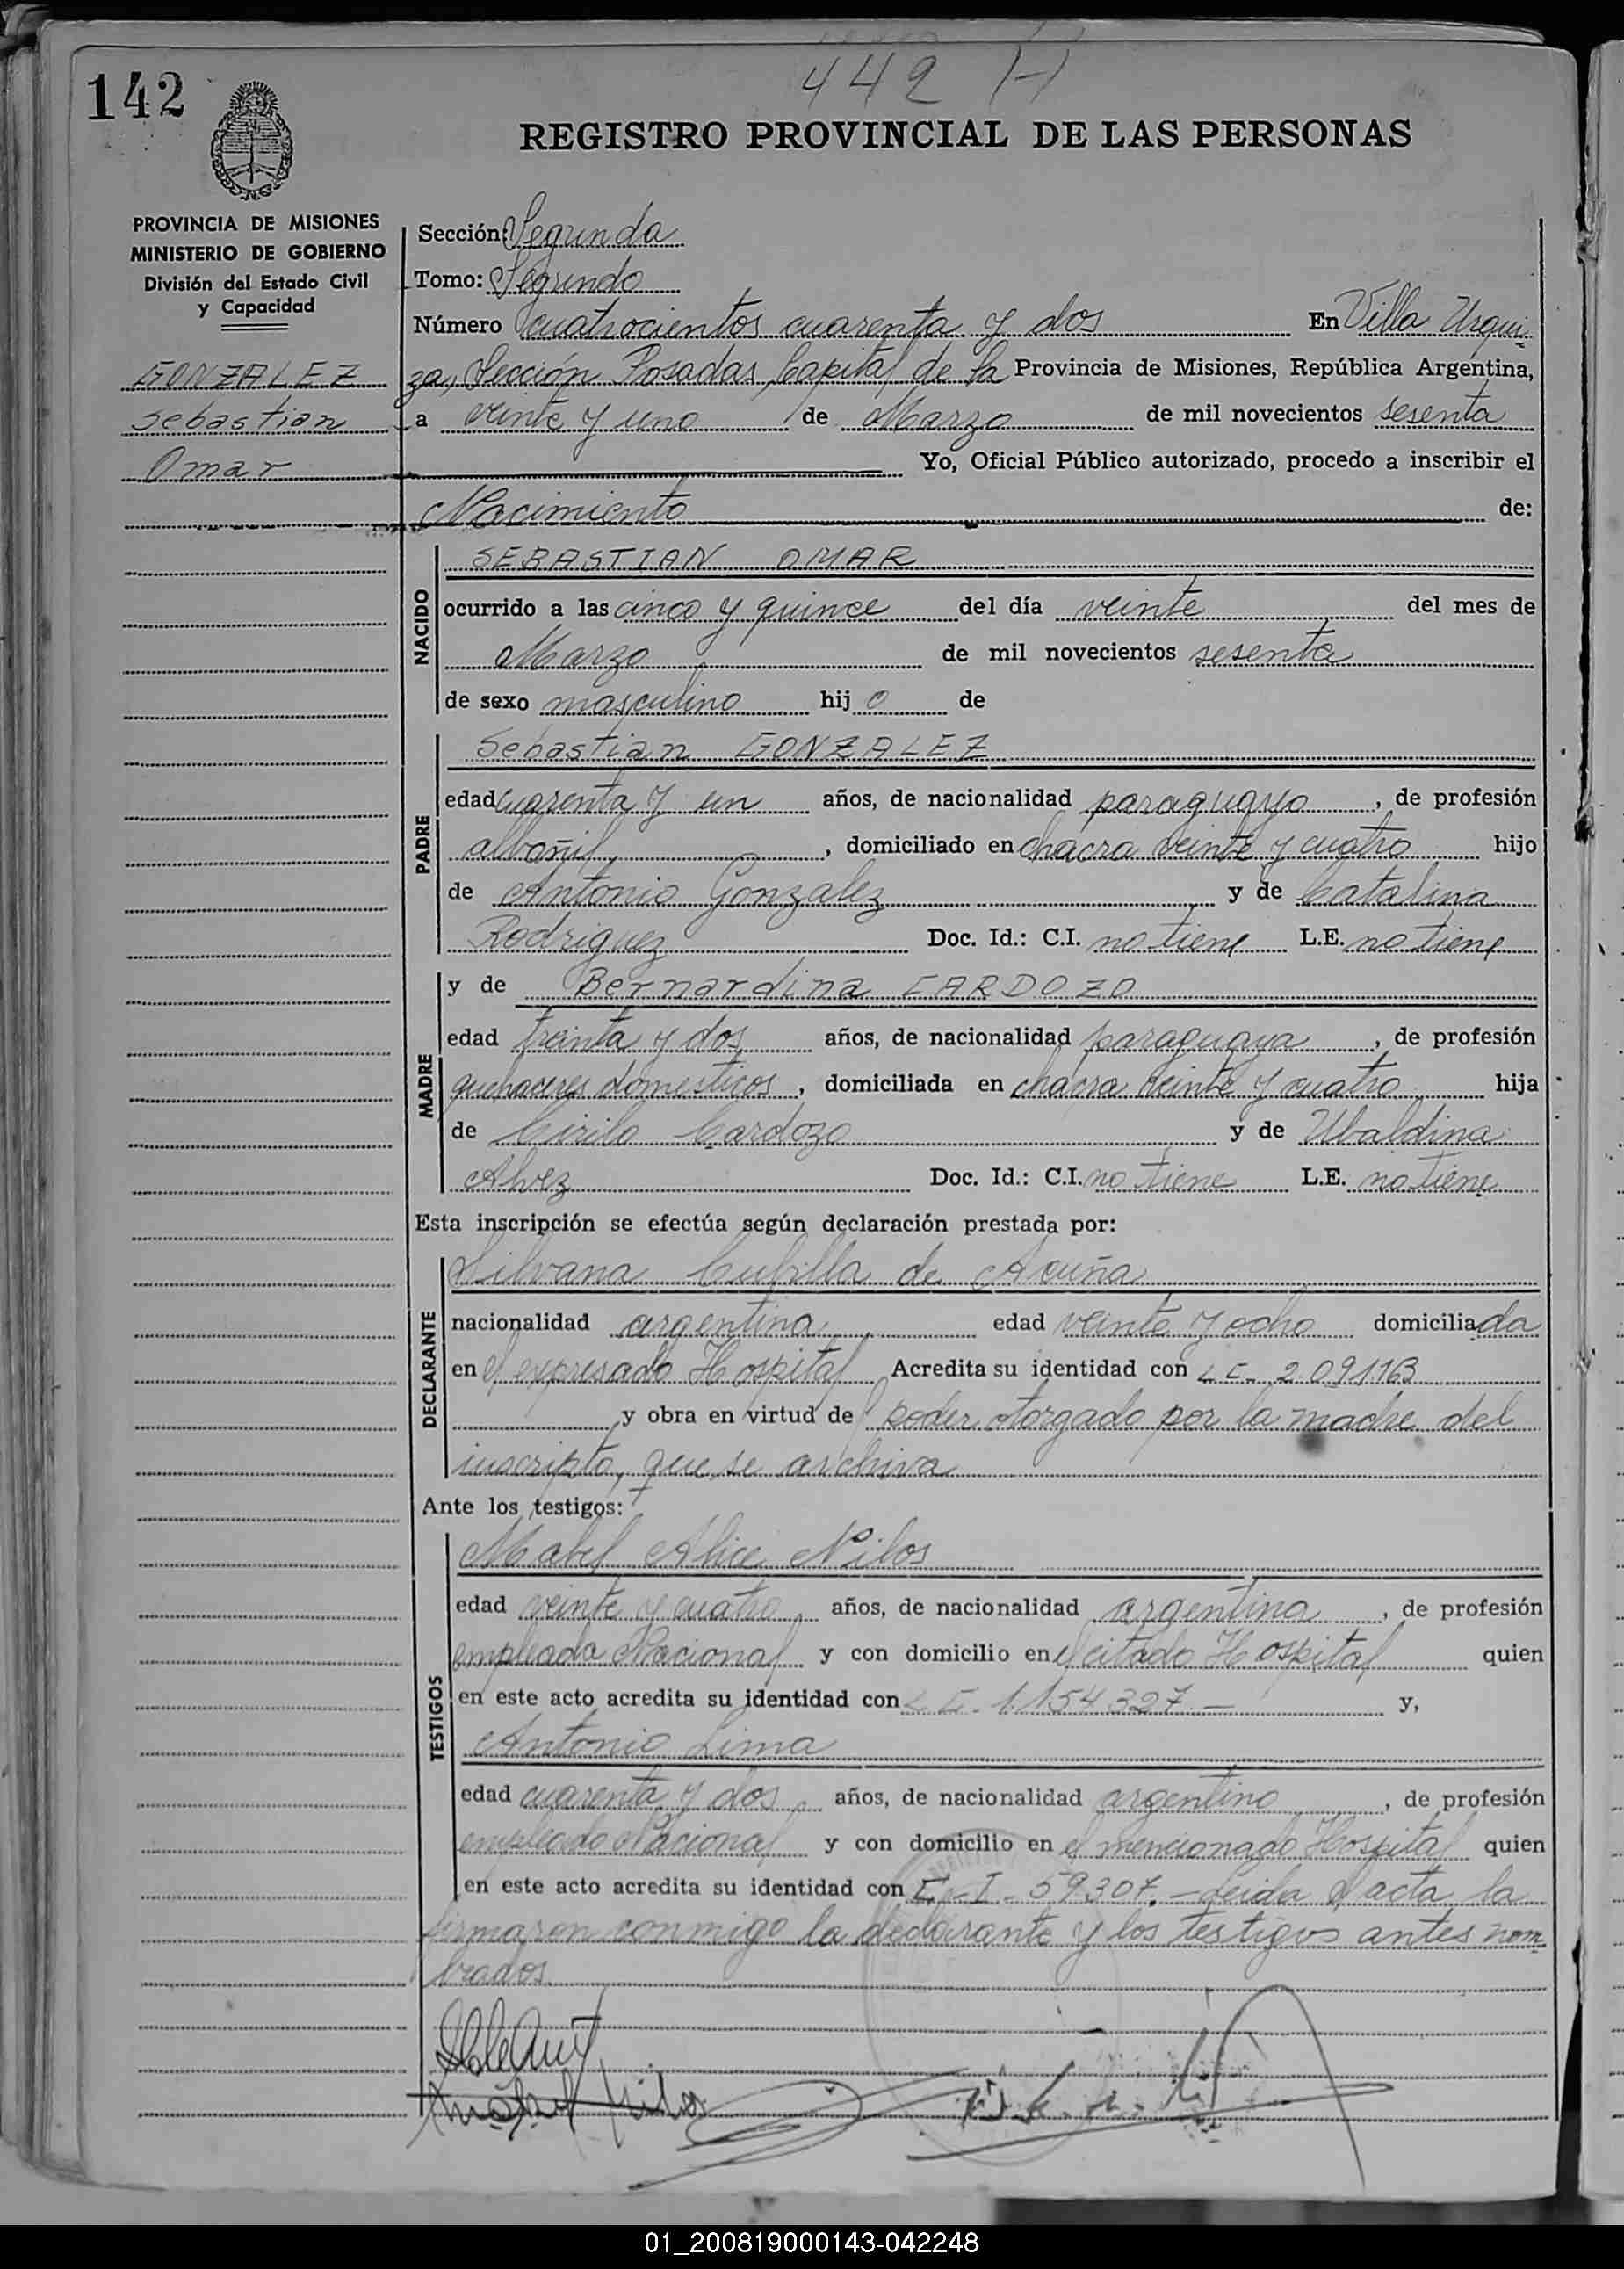 442 H
142
REGISTRO PROVINCIAL DE LAS PERSONAS
PROVINCIA DE MISIONES
MINISTERIO DE GOBIERNO
División del Estado Civil
y Capacidad
GONZALEZ
Sebastian
Omar
Sección: Segunda
Tomo: Segundo
Número cuatrocientos cuarenta y dos En Villa Urqui
za, Sección Posadas, Capital de la Provincia de Misiones, República Argentina,
a veinte y uno de Marzo de mil novecientos sesenta
Yo, Oficial Público autorizado, procedo a inscribir el
Nacimiento de:
NACIDO
SEBASTIAN OMAR
ocurrido a las cinco y quince del día veinte del mes de
Marzo de mil novecientos sesenta
de sexo masculino hij o de
PADRE
Sebastian GONZALEZ
edad cuarenta y un años, de nacionalidad paraguayo, de profesión
albañil, domiciliado en chacra veinte y cuatro hijo
de Antonio Gonzalez y de Catalina
Rodriguez Doc. Id.: C.I. no tiene L.E. no tiene
MADRE
y de Bernardina CARDOZO
edad treinta y dos años, de nacionalidad paraguaya, de profesión
quehaceres domesticos, domiciliada en chacra veinte y cuatro hija
de Cirilo Cardozo y de Ubaldina
Alvez Doc. Id.: C.I. no tiene L.E. no tiene
Esta inscripción se efectúa según declaración prestada por:
DECLARANTE
Silvana Cubilla de Acuña
nacionalidad argentina edad veinte y ocho domiciliada
en el expresado Hospital Acredita su identidad con L C- 2.091163
y obra en virtud de poder otorgado por la madre del
inscripto, que se archiva
Ante los testigos:
TESTIGOS
Mabel Alice Nilos
edad veinte y cuatro años, de nacionalidad argentina, de profesión
empleada Nacional y con domicilio en el citado Hospital quien
en este acto acredita su identidad con L C. 1.154.327 - y,
Antonio Lima
edad cuarenta y dos años, de nacionalidad argentino, de profesión
empleado Nacional y con domicilio en el mencionado Hospital quien
en este acto acredita su identidad con C-I- 59307.- Leida el acta la
firmaron conmigo la declarante y los testigos antes nom
brados.
01_200819000143-042248